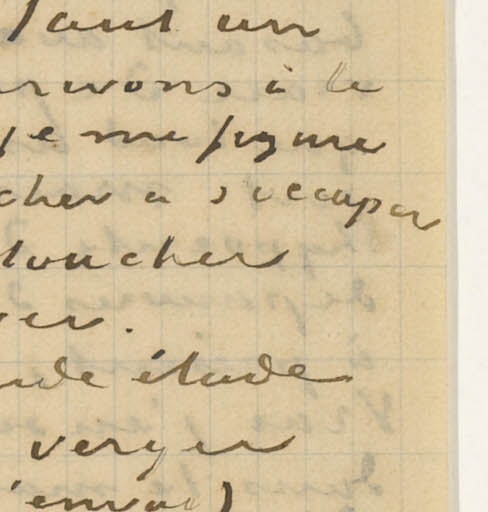 faut un
rrivons à le
je me figure
cher a s'occuper
toucher
ver.
nde étude
verger
l'envoi)